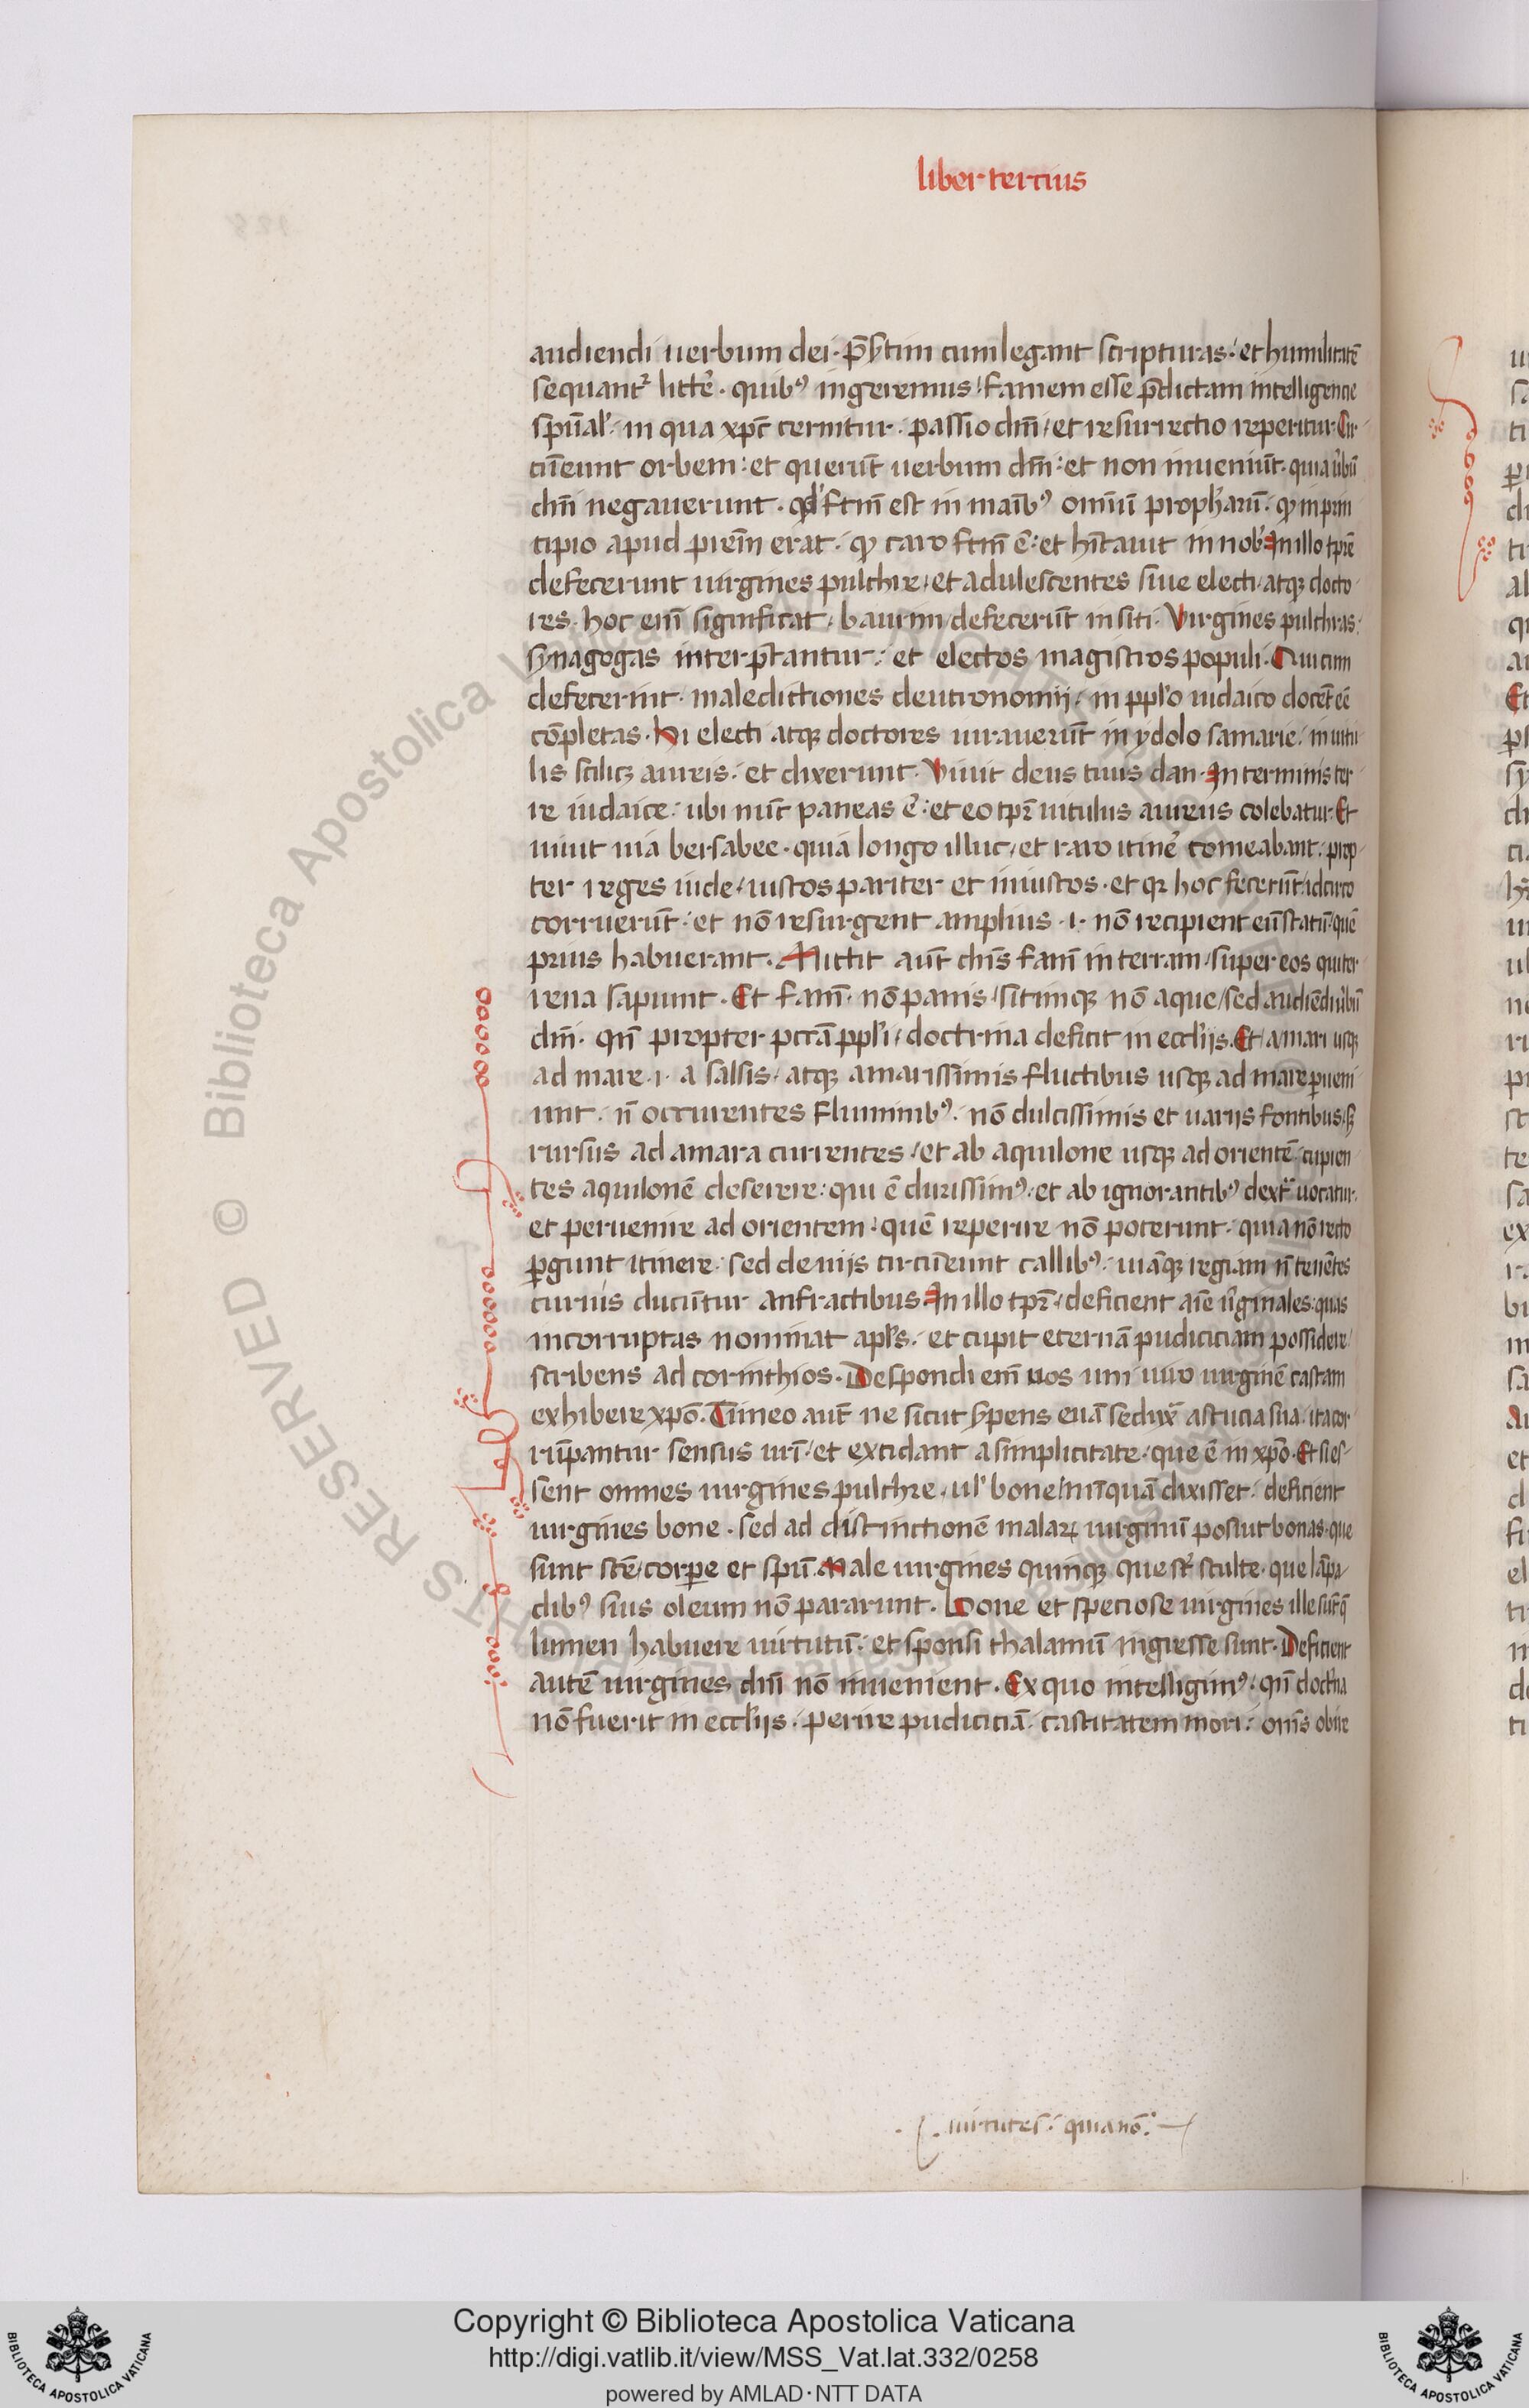 liber tertius
audiendi uerbum dei. p̄s̄tim cum legant scripturas: et humilitatē
sequantᷣ litt̄e. quibꝰ ingeremus: famem esse p̄dictam intelligencie
spūal'. in qua xp̄c cernitur. passio dn̄i, et resurrectio reperitur. Cir
cūeunt orbem: et querūt uerbum dn̄i: et non inueniūt. quia ūbū
dn̄i negauerunt. qd' f̄c̄m est in manībꝰ omniū prophetarū. qd in prin
cipio apud patrem erat. qd caro f̄c̄m ē: et hītauit in nob' In illo tpr̄e
defecerunt uirgines pulchre, et adulescentes siue electi, atqꝫ docto
res. hoc enī significat, baurim, defecerūt in siti. Virgines pulchras:
synagogas interp̄tantur: et electos magistros populi. Qui cum
defecerint. maledictiones deutronomij, in ppl'o iudaico docēt eē
cōpletas. Hi electi atqꝫ doctores iurauerūt in ydolo samarie. in uitu
lis scilicꝫ aureis. et dixerunt. Viuit deus tuus dan. In terminis ter
re iudaice: ubi nūc paneas ē: et eo tpr̄e uitulus aureus colebatur. Et
uiuit uia bersabee. quia longo illuc, et raro itinē comeabant. prop
ter reges iude, iustos pariter et iniustos. et qꝛ hoc fecerūt, idcirco
corruerūt: et nō resurgent amplius .i. nō recipient eū statū, quē
prius habuerant. Mittit aūt dn̄s famē in terram, super eos qui ter
rena sapiunt. Et famē. nō panis, sitimqꝫ nō aque, sed audiēdi ūbū
dn̄i. qn̄ propter pccā ppl'i, doctrina deficit in eccl'ijs. Et a mari usqꝫ
ad mare .i. a salsis. atqꝫ amarissimis fluctibus usqꝫ ad mare pueni
unt. n̄ occurentes fluminibꝰ. nō dulcissimis et uarijs fontibus, sꝫ
rursus ad amara currentes, et ab aquilone usqꝫ ad orientē. cupien
tes aquilonē deserere: qui ē durissimꝰ. et ab ignorantibꝰ dext̄ uocatur.
et peruenire ad orientem: quē reperire nō poterunt. quia nō recto
ꝑgunt itinere: sed deuijs circūeunt callibꝰ. uiāqꝫ regiam n̄ tenētes
curuis ducūtur anfractibus. In illo tpr̄e, deficient aīe ūginales: quas
incorruptas nominat apl's. et cupit eternā pudiciciam possidere,
scribens ad corinthios. Despondi enī uos uni uiro uirginē castam
exhibere xpō. Timeo aūt ne sicut s̄pens euā seduxᷓ astucia sua. ita cor
rūpantur sensus urī, et excidant a simplicitate, que ē in xpō. Et si es
sent omnes uirgines pulchre, ul' bone, nūquā dixisset. deficient
uirgines bone. sed ad distinctionē malaꝝ uirginū posuit bonas. que
sunt stē, corpe et spū. Male uirgines quinqꝫ que st̄ stulte. que lāpa
dibꝰ suis oleum nō pararunt. Bone et speciose uirgines ille sūt q̄
lumen habuere uirtutū. et sponsi thalamū ingresse sunt. Deficient
autē uirgines dn̄i nō inuenient. Ex quo intelligimꝰ. qn̄ doct̄na
nō fuerit in eccl'ijs. perire pudiciciā. castitatem mori: om̄s obire
uirtutes. quia nō.
RIGHTS RESERVED © Biblioteca Apostolica Vaticana
Copyright © Biblioteca Apostolica Vaticana
http://digi.vatlib.it/view/MSS_Vat.lat.332/0258
powered by AMLAD·NTT DATA
BIBLIOTECA APOSTOLICA VATICANA
BIBLIOTECA APOSTOLICA VATICANA